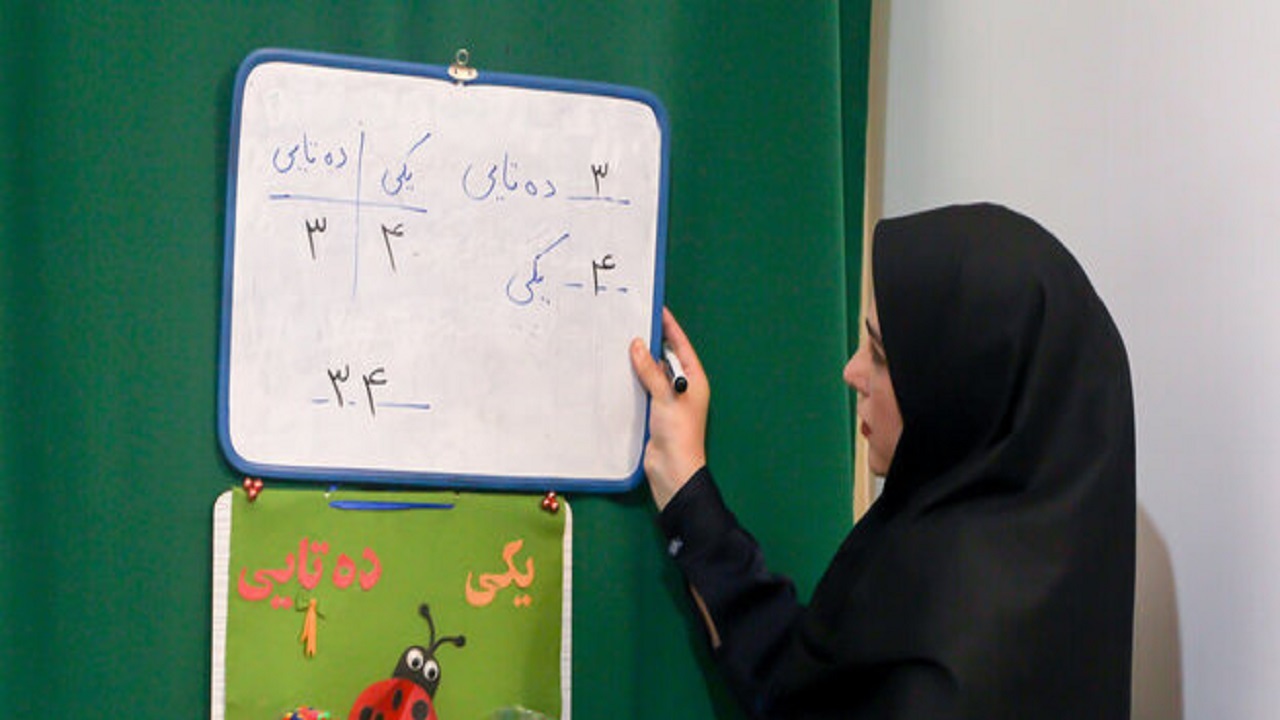 ۳ ده تایی
۴ یکی
ده تایی یکی
۳ ۴
۳۴
ده تایی یکی